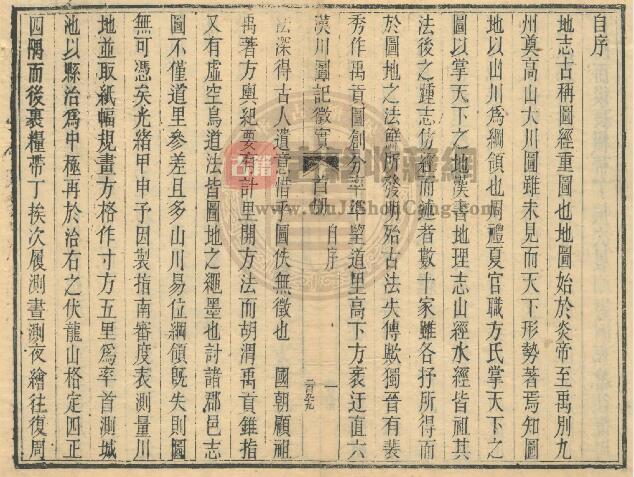 自序
地志古稱圖經重圖也地圖始於炎帝至禹別九
州奠高山大川圖雖未見而天下形勢著焉知圖
地以山川爲綱領也周禮夏官職方氏掌天下之
圖以掌天下之地漢書地理志山經水經皆祖其
法後之踵志仿經而述者數十家雖各抒所得而
於圖地之法鮮所發明殆古法失傳歟獨晉有裴
秀作禹貢圖創分率準望道里高下方衺迂直六
漢川圖記徵實 首册 自序 一
法深得古人遺意惜乎圖佚無徵也 國朝顧祖
禹著方輿紀要有計里開方法而胡渭禹貢錐指
又有虛空鳥道法皆圖地之繩墨也討諸郡邑志
圖不僅道里參差且多山川易位綱領旣失則圖
無可憑矣光緒甲申予因製指南審度表測量川
地並取紙幅規畫方格作寸方五里爲率首測城
池以縣治爲中極再於治右之伏龍山格定四正
四隅而後裹糧帶丁挨次履測晝測夜繪往復周
古籍收藏網
www.GuJiShouCang.com